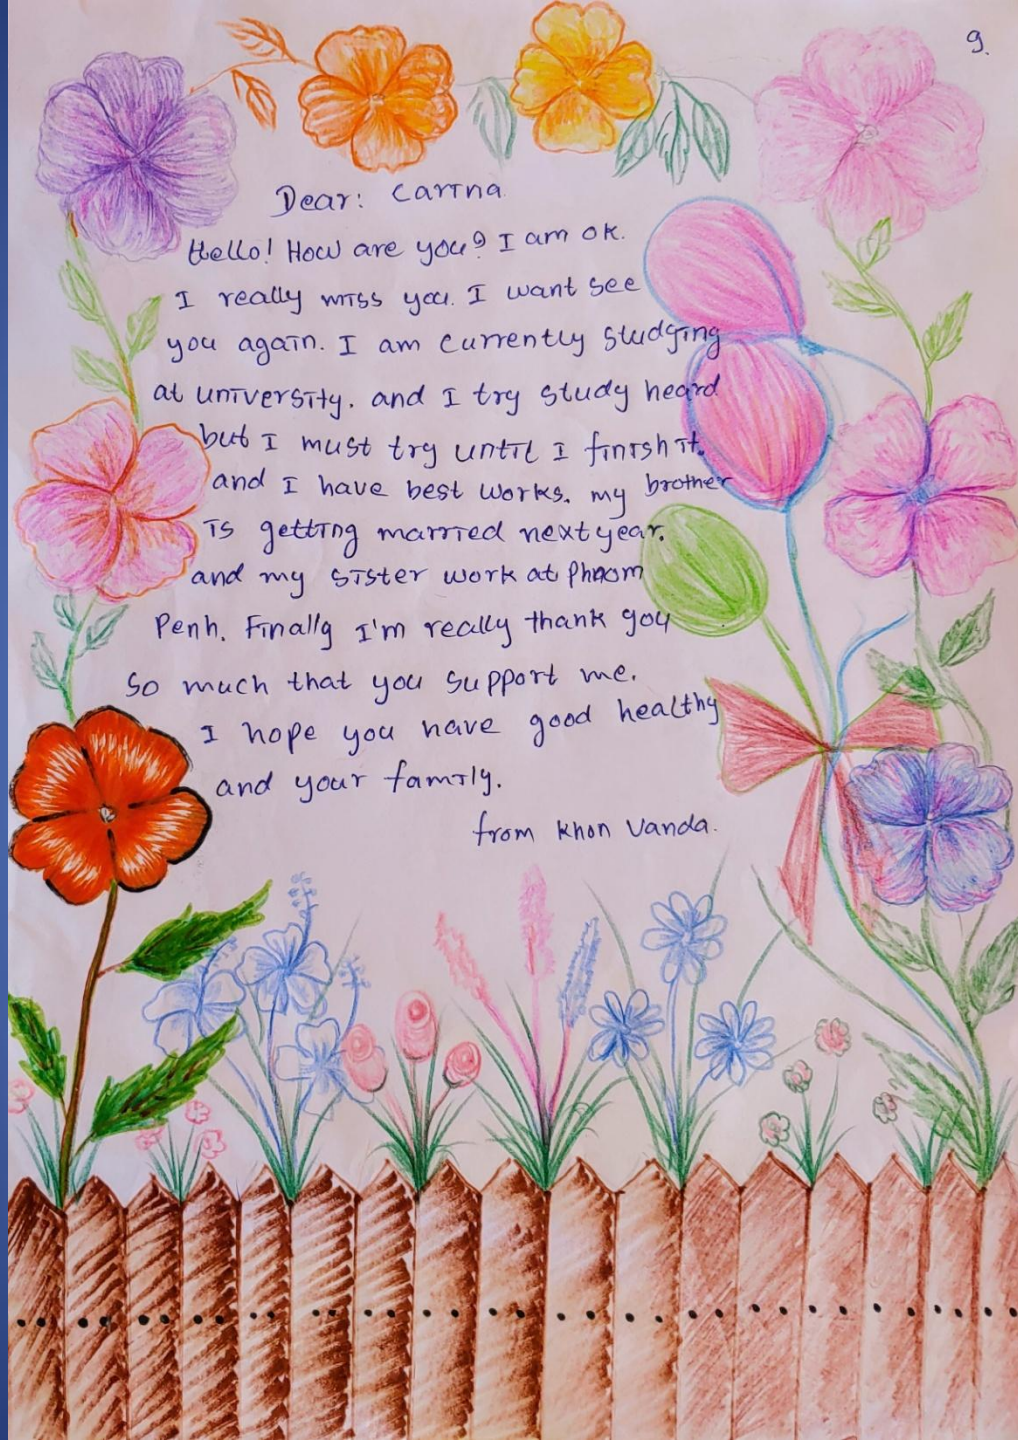 9.
Dear: Carina
Hello! How are you? I am ok.
I really miss you. I want see
you again. I am currently studying
at university. and I try study heard
but I must try until I finish it.
and I have best works. my brother
is getting married next year.
and my sister work at Phnom
Penh. Finally I'm really thank you
so much that you support me.
I hope you have good healthy
and your family.
from Khon Vanda.